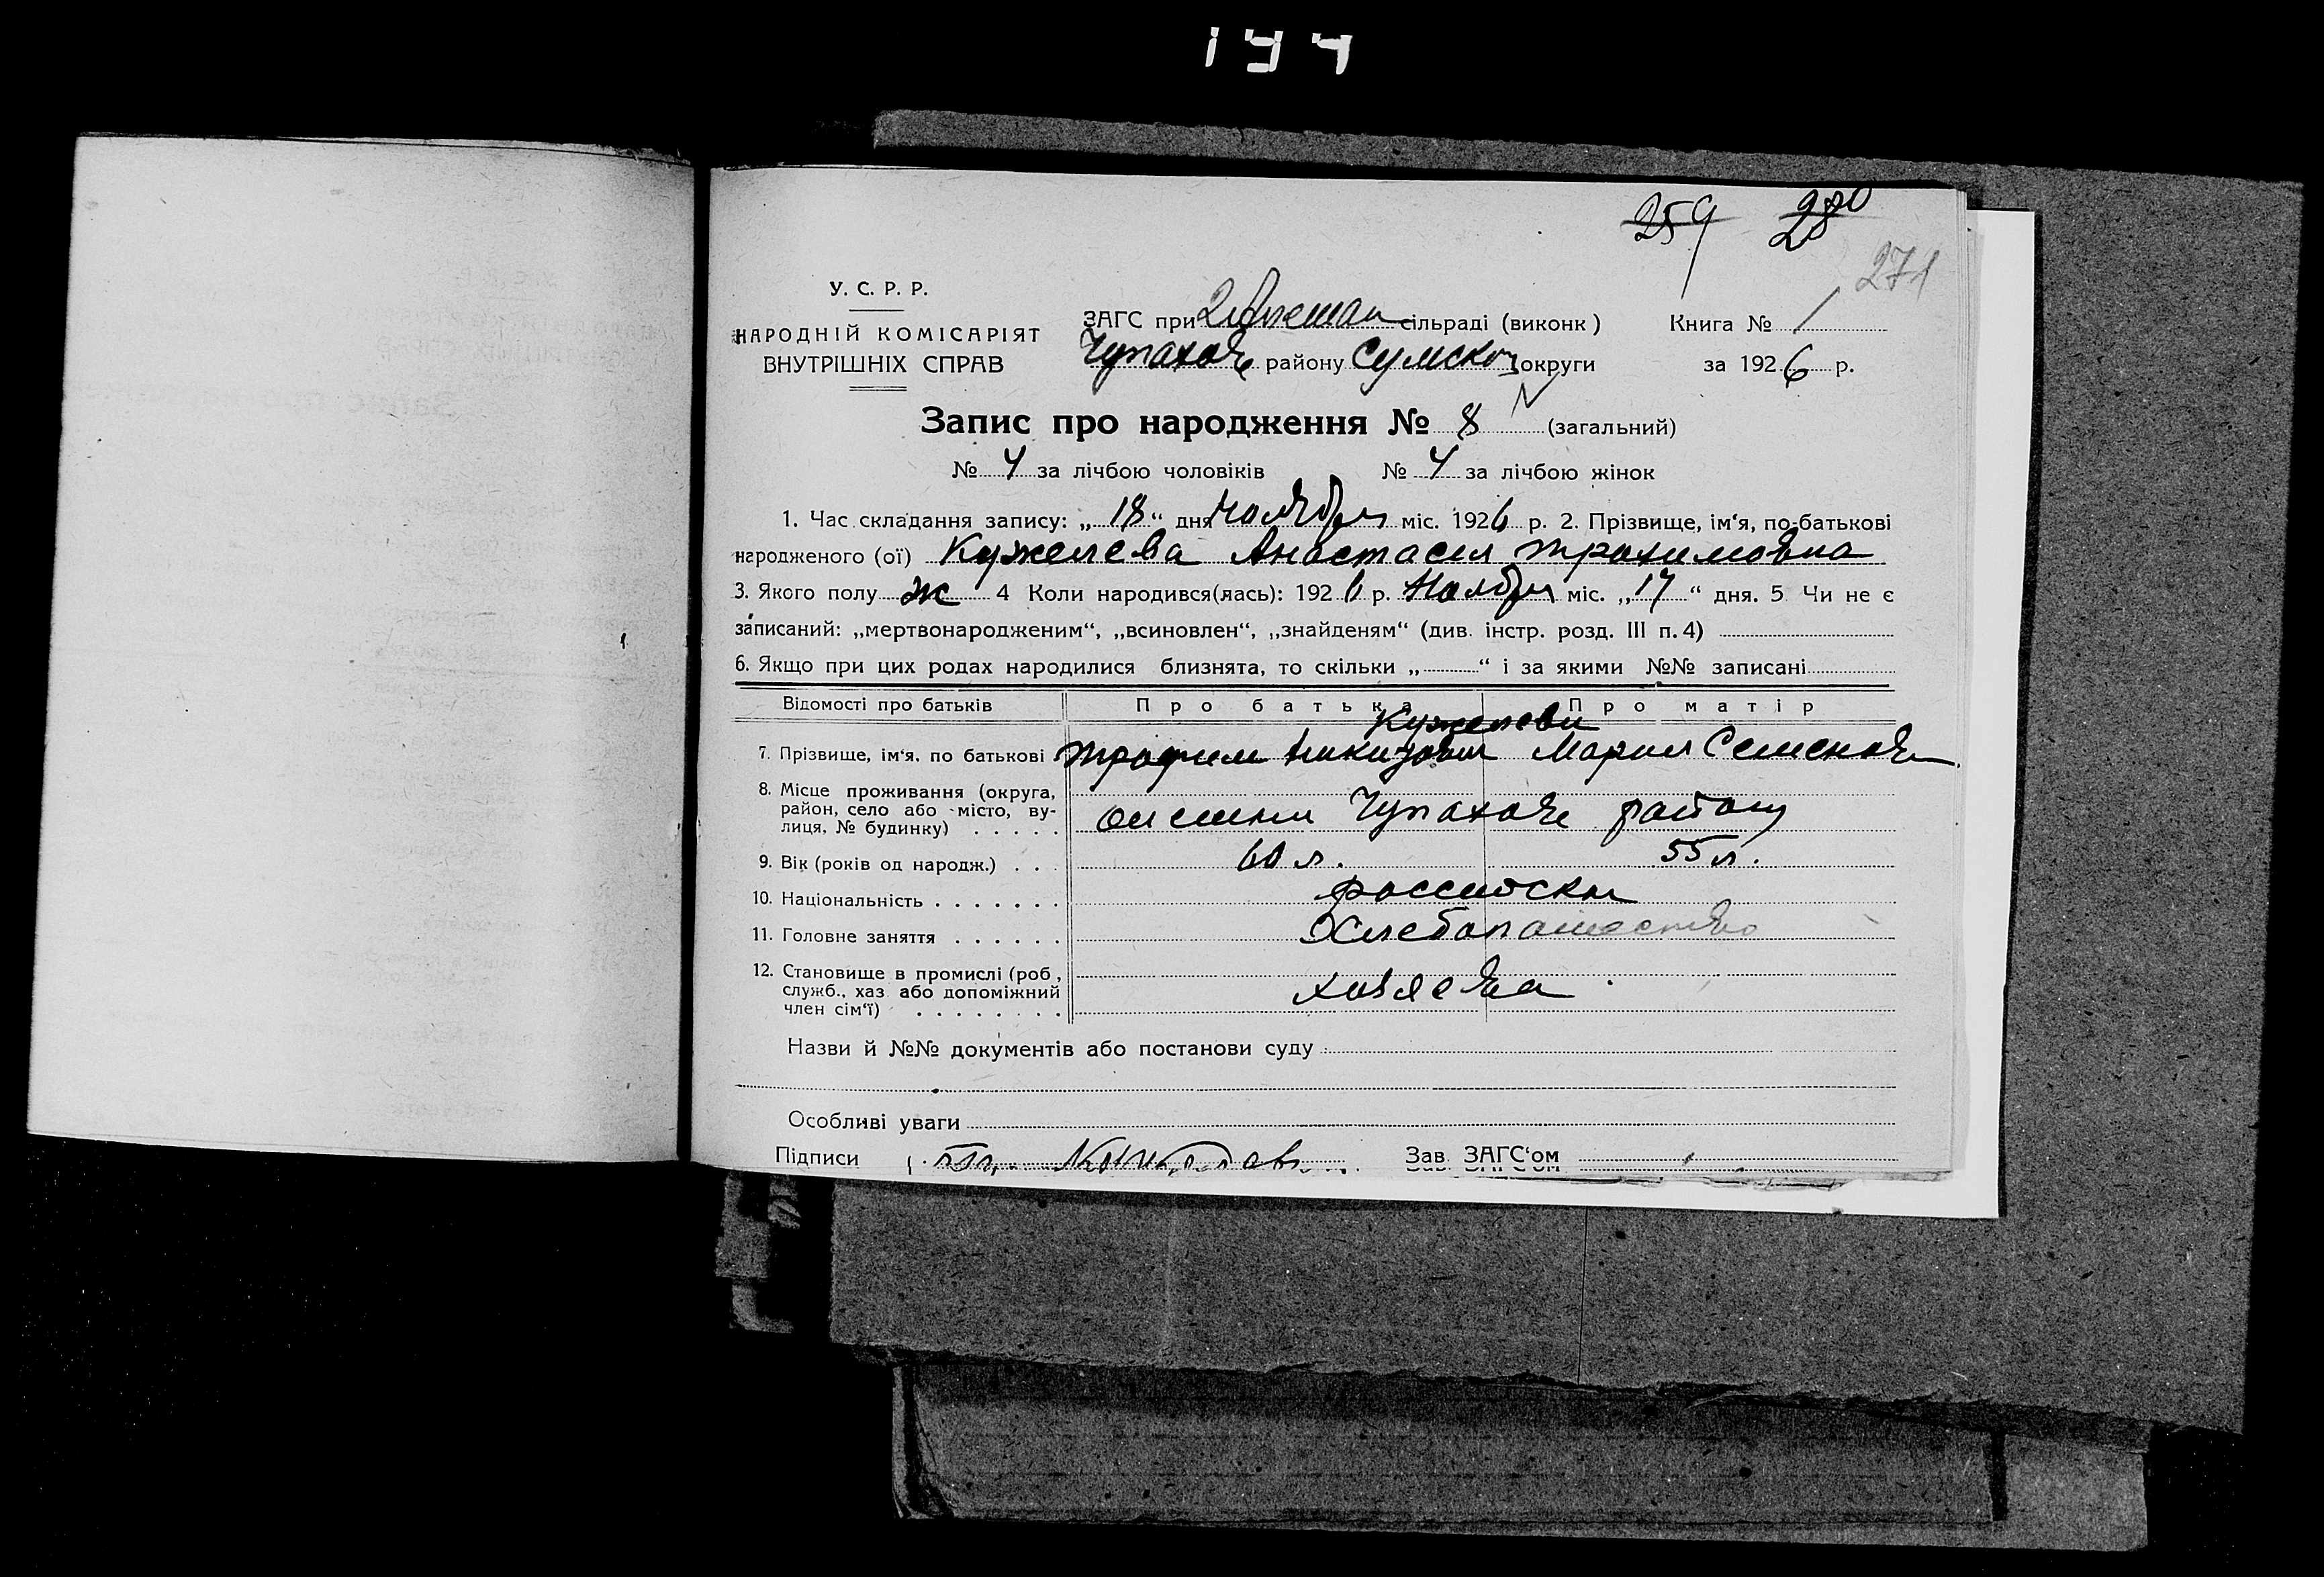 194
259 280
271
У. С. Р. Р.
НАРОДНІЙ КОМІСАРІЯТ
ВНУТРІШНІХ СПРАВ
ЗАГС при сільраді (виконк)
Чупахов району Сумской округи
Книга № 1
за 1926 р.
Запис про народження № 8 (загальний)
№ 4 за лічбою чоловіків № 4 за лічбою жінок
1. Час складання запису: „18“ дня Ноября міс. 1926 р. 2. Прізвище, ім‘я, по-батькові
народженого (ої) Кужелева Анастасия Трохимовна
3. Якого полу ж 4 Коли народився(лась): 1926 р. Ноября міс. „17“ дня. 5 Чи не є
записаний: „мертвонародженим“, „всиновлен“, „знайденям“ (див. інстр. розд. III п. 4)
6. Якщо при цих родах народилися близнята, то скільки „ “ і за якими №№ записані
Відомості про батьків Про батька Про матір
Кужелеви
7. Прізвище, ім‘я. по батькові Трофим Мария Семенов
8. Місце проживання (округа,
район, село або місто, ву-
лиця, № будинку) . . . . .
Олешни Чупахов району
9. Вік (років од народж.) . . . 60 л. 55 л.
10. Національність . . . . . . . российски
11. Головне заняття . . . . . . Хлебопашество
12. Становище в промислі (роб,
служб., хаз. або допоміжний
член сім‘ї) . . . . . . . .
хозяева
Назви й №№ документів або постанови суду
Особливі уваги
Підписи Зав. ЗАГС‘ом